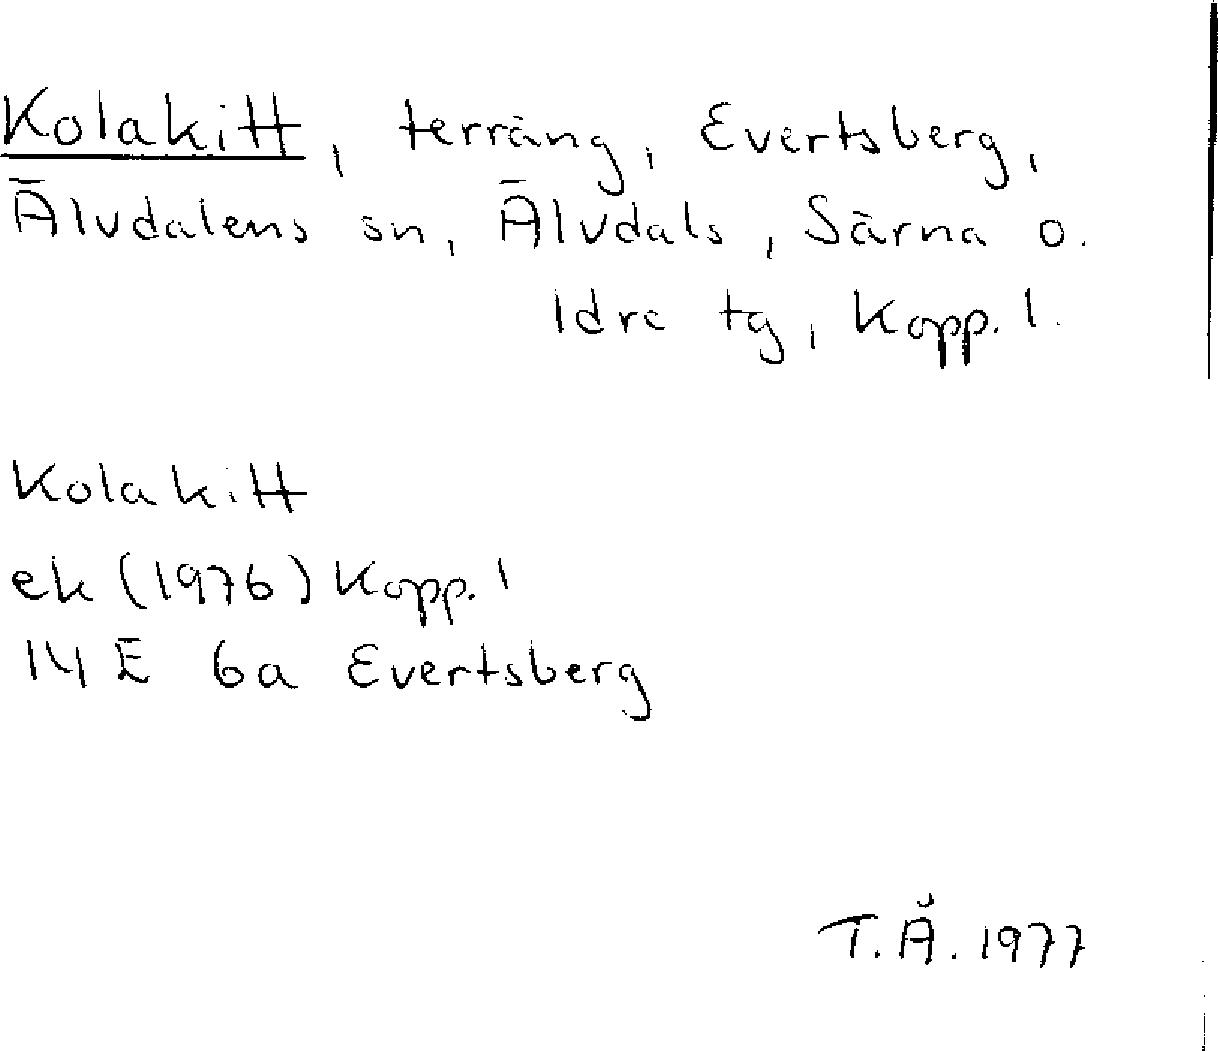 Kolakitt, terräng, Evertsberg,
Älvdalens sn, Älvdals, Särna o.
Idre tg, Kopp. l.
Kolakitt
ek (1976) Kopp. l
14 E 6a Evertsberg
T. Å. 1977